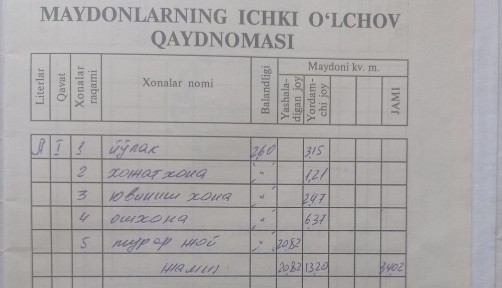 MAYDONLARNING ICHKI O‘LCHOV
QAYDNOMASI
Literlar Qavat Xonalar raqami Xonalar nomi Balandligi Maydoni kv. m. Yashaladigan joy Yordamchi joy JAMI
A I 1 йўлак 2,60 3,15
2 хожатхона -"- 1,21
3 ювиниш хона -"- 2,47
4 ошхона -"- 6,37
5 турар жой -"- 20,82
жами 20,82 13,20 34,02